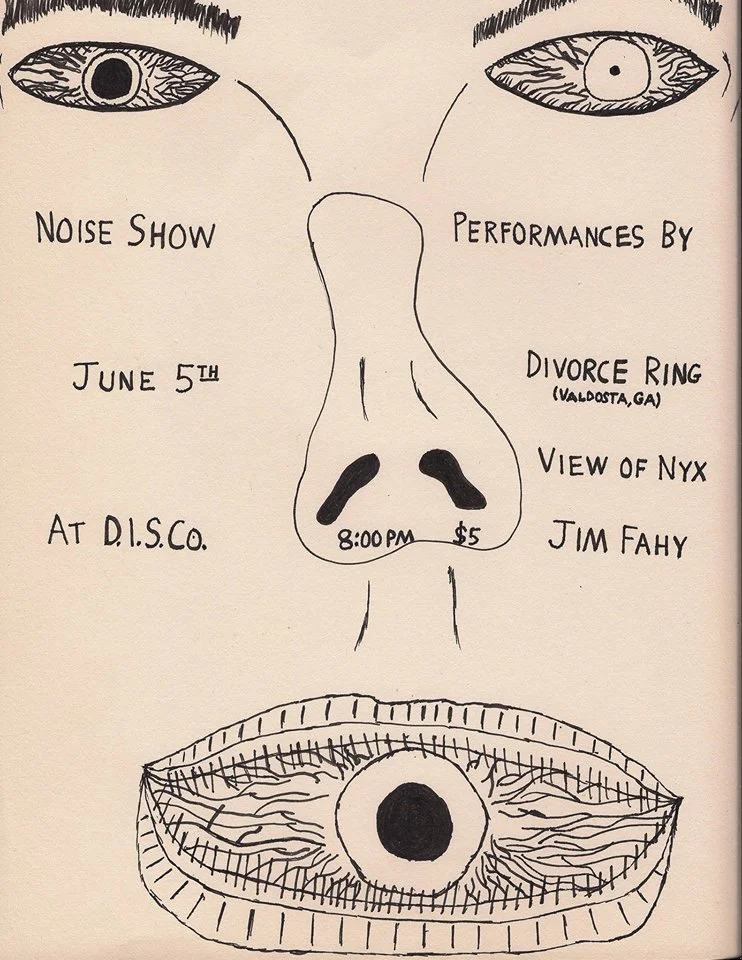 NOISE SHOW
JUNE 5TH
AT D.I.S.CO.
PERFORMANCES BY
DIVORCE RING
(VALDOSTA, GA)
VIEW OF NYX
JIM FAHY
8:00 PM $5